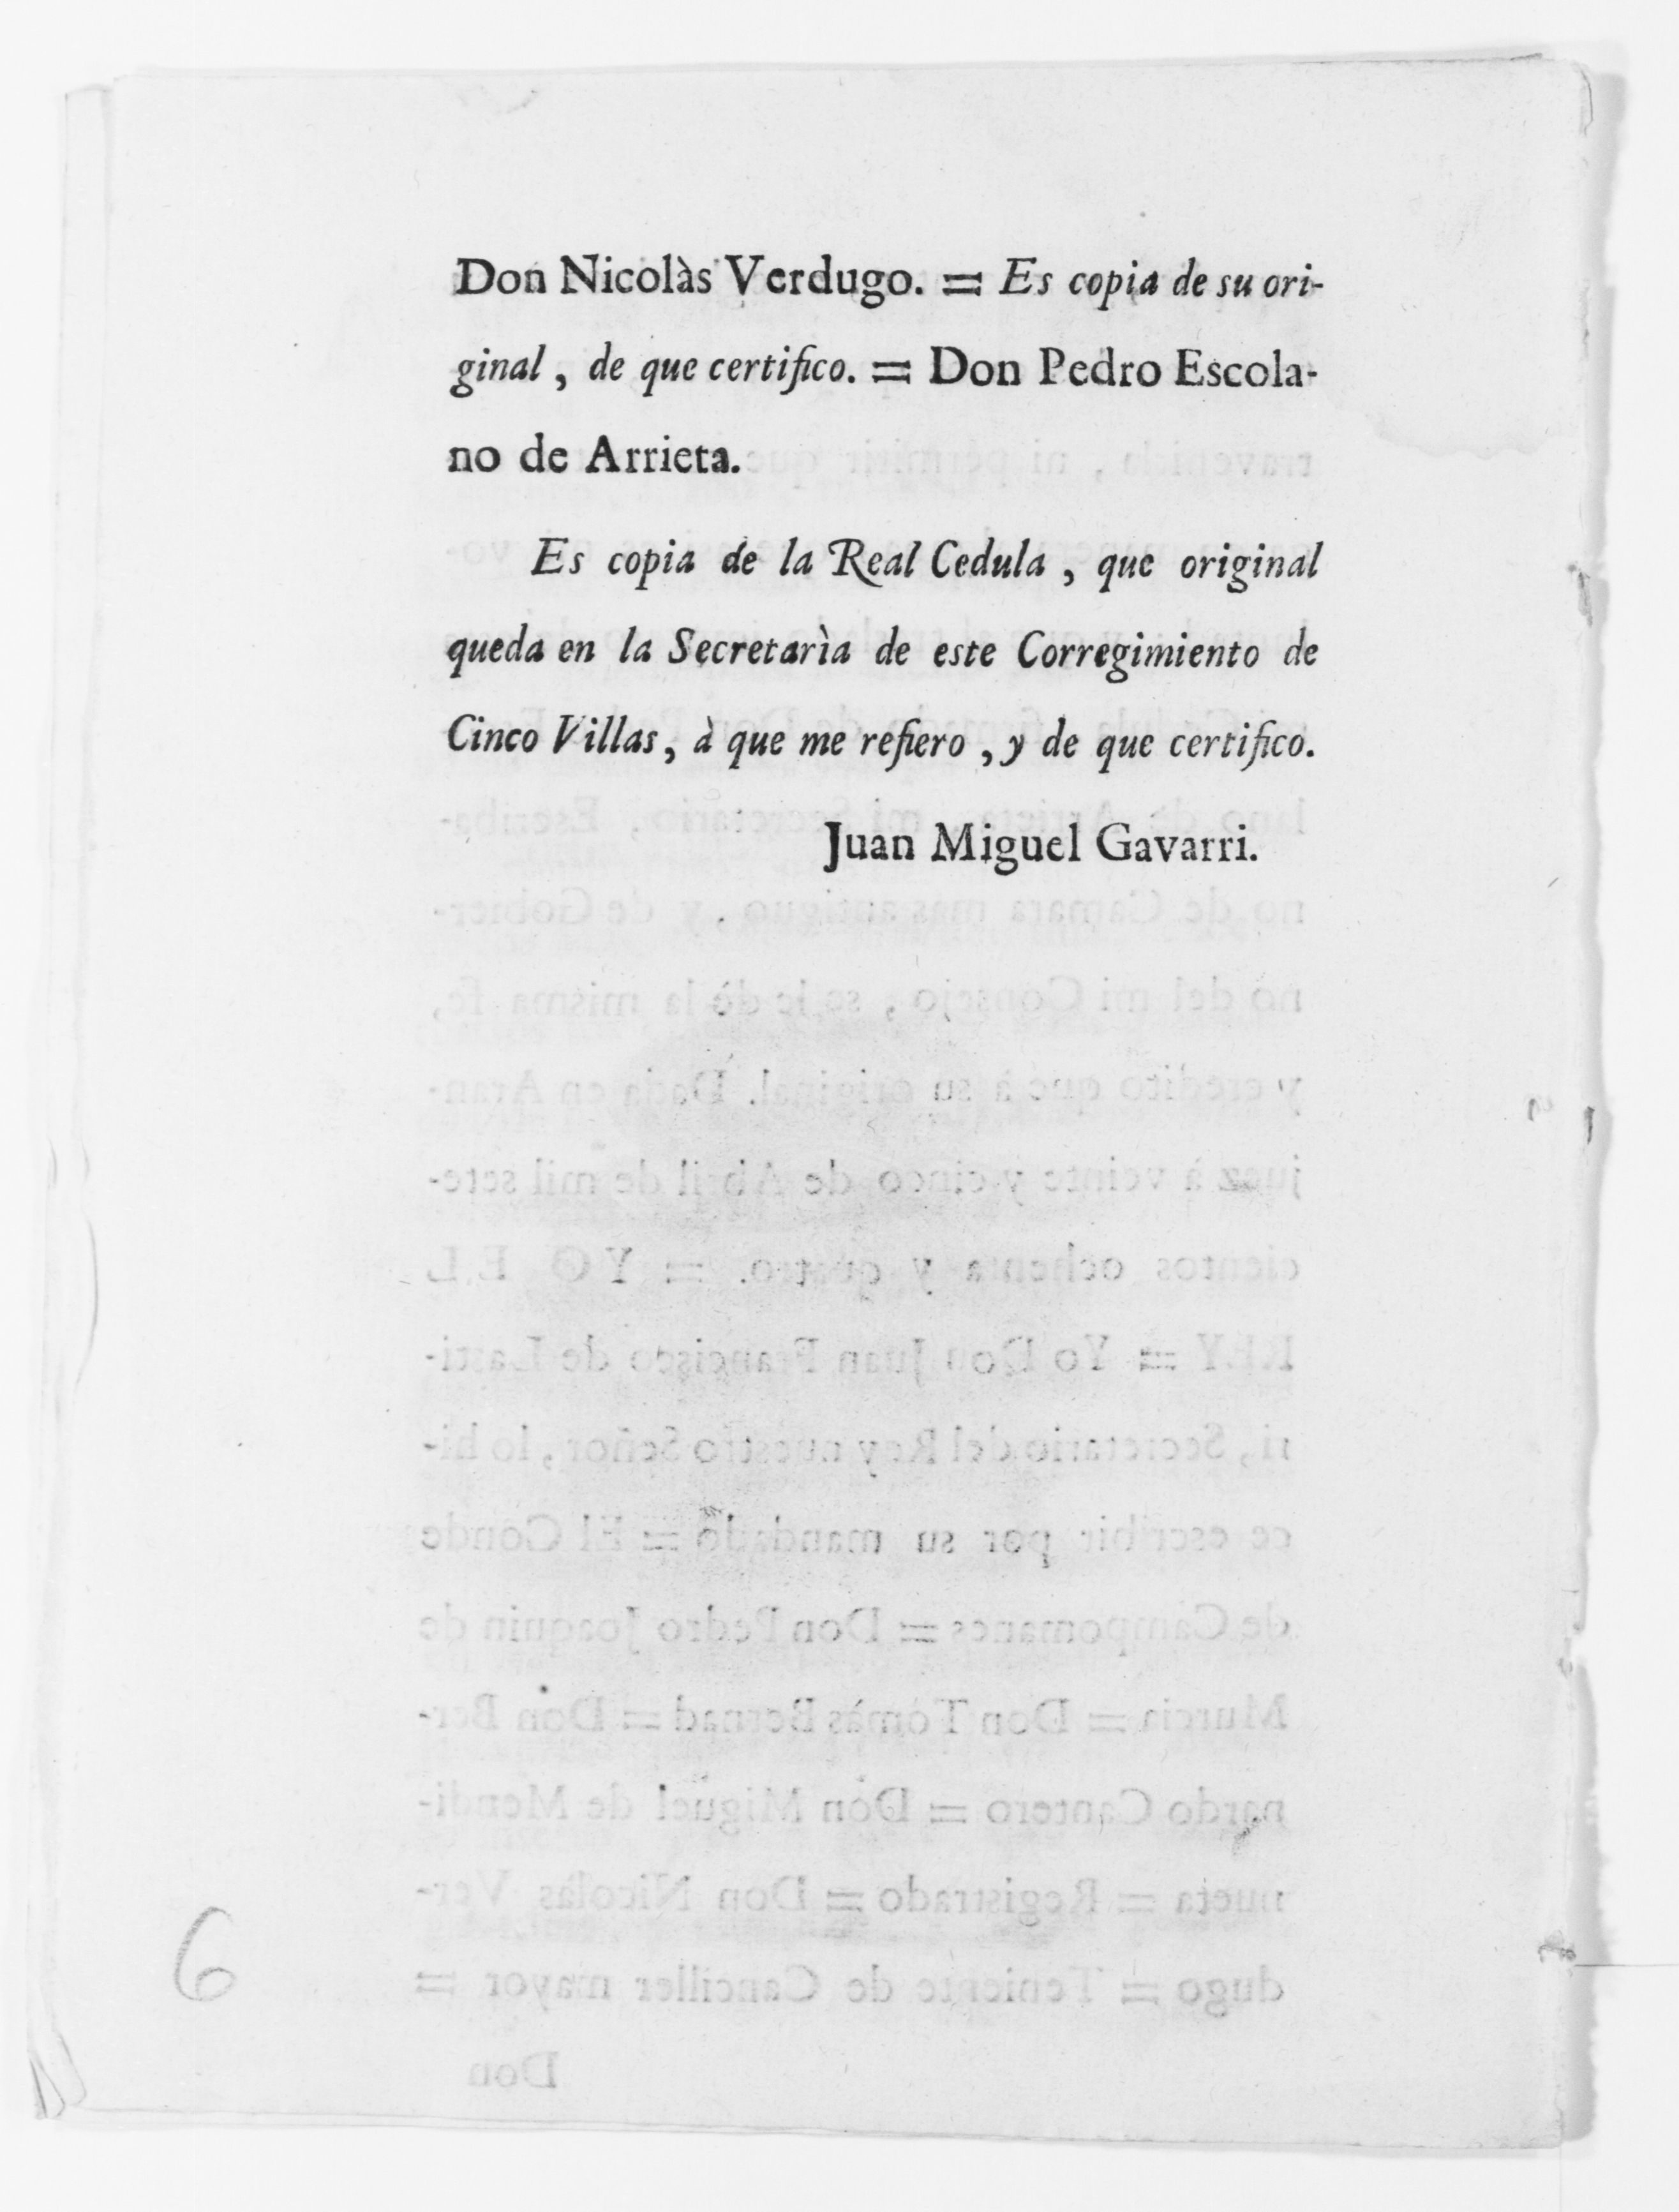 Don Nicolàs Verdugo. = Es copia de su ori-
ginal, de que certifico. = Don Pedro Escola-
no de Arrieta.
Es copia de la Real Cedula, que original
queda en la Secretarìa de este Corregimiento de
Cinco Villas, à que me refiero, y de que certifico.
Juan Miguel Gavarri.
6